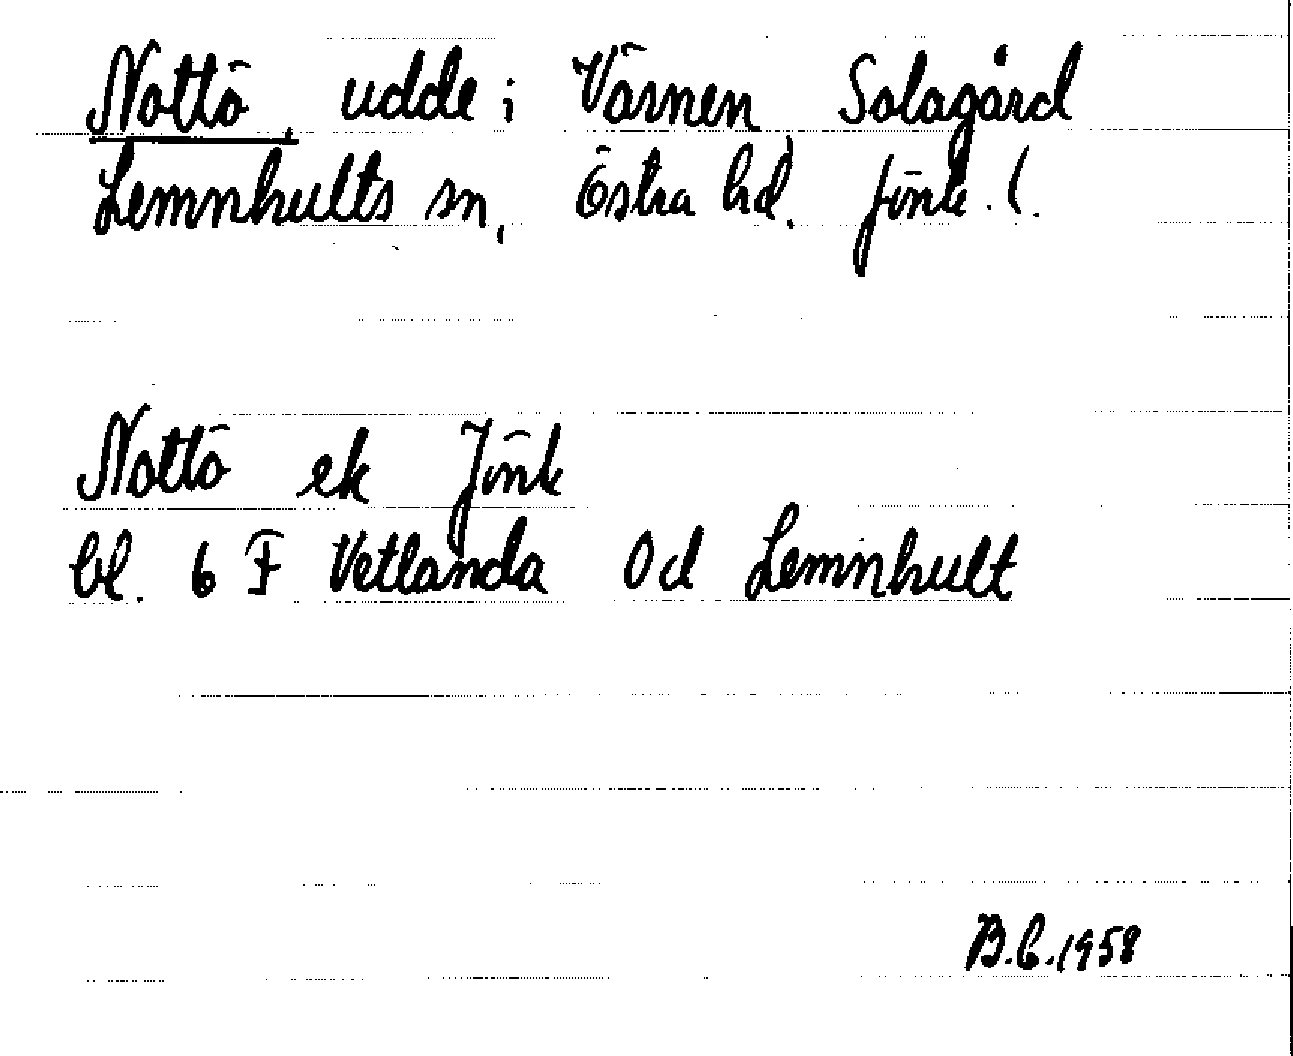 Nottö, udde i Värnen Solagård
Lemnhults sn, Östra hd. Jönk. l.
Nottö ek Jönk
bl. 6 F Vetlanda Od Lemnhult
B.E. 1958